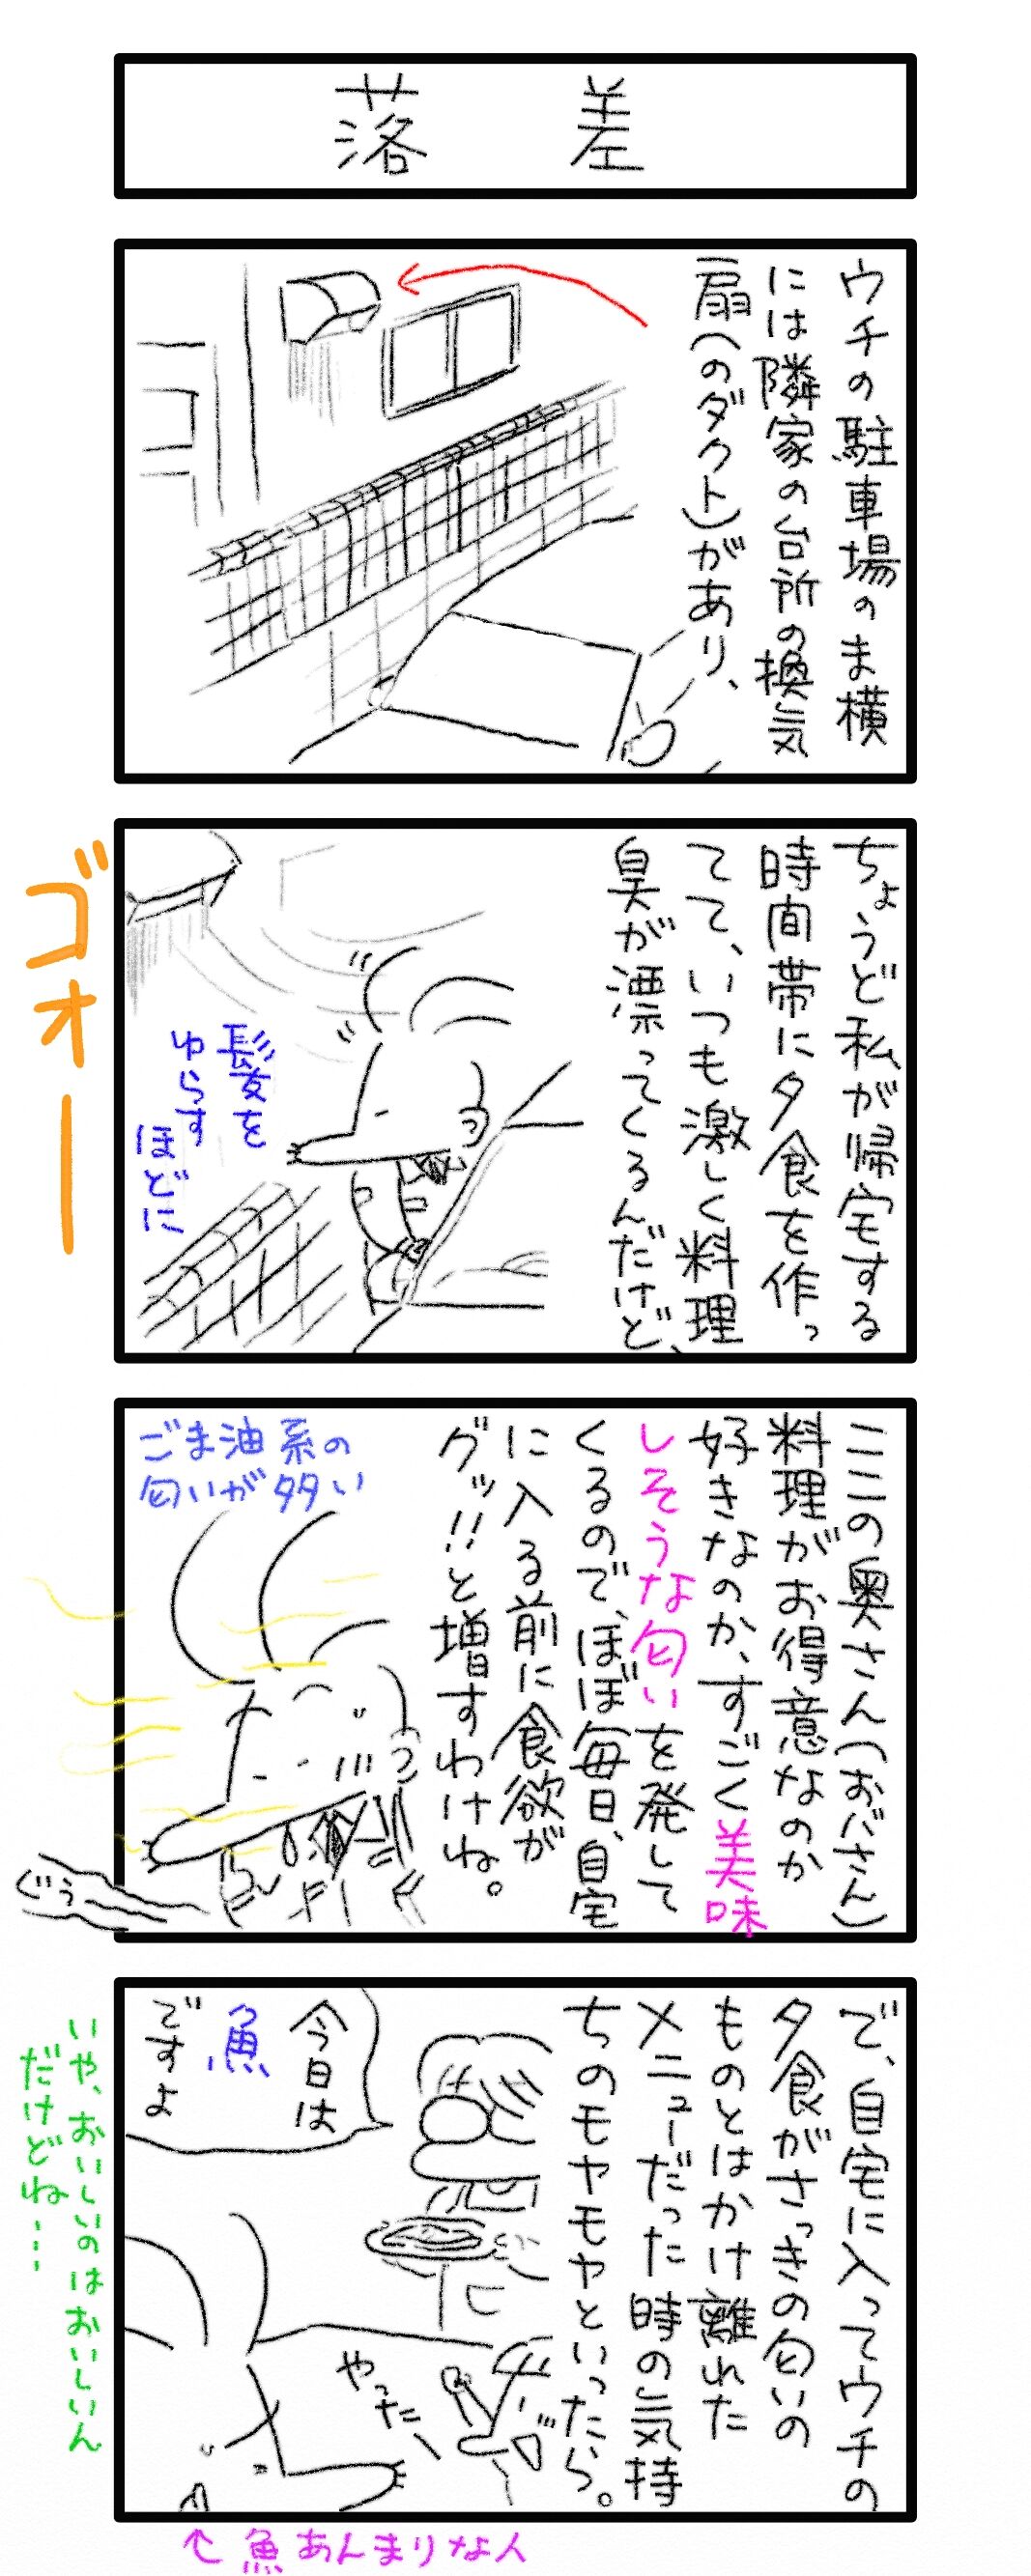 落差
ウチの駐車場のま横
には隣家の台所の換気
扇(のダクト)があり、
ちょうど私が帰宅する
時間帯に夕食を作っ
てて、いつも激しく料理
臭が漂ってくるんだけど、
髪を
ゆらす
ほどに
ゴオー
ここの奥さん(おばさん)
料理がお得意なのか
好きなのか、すごく美味
しそうな匂いを発して
くるので、ほぼ毎日、自宅
に入る前に食欲が
グッ!!と増すわけね。
ごま油系の
匂いが多い
ぐぅ
で、自宅に入ってウチの
夕食がさっきの匂いの
ものとはかけ離れた
メニューだった時の気持
ちのモヤモヤといったら。
今日は
魚
ですよ
やったー
いや、おいしいのはおいしいん
だけどね…
↑魚あんまりな人